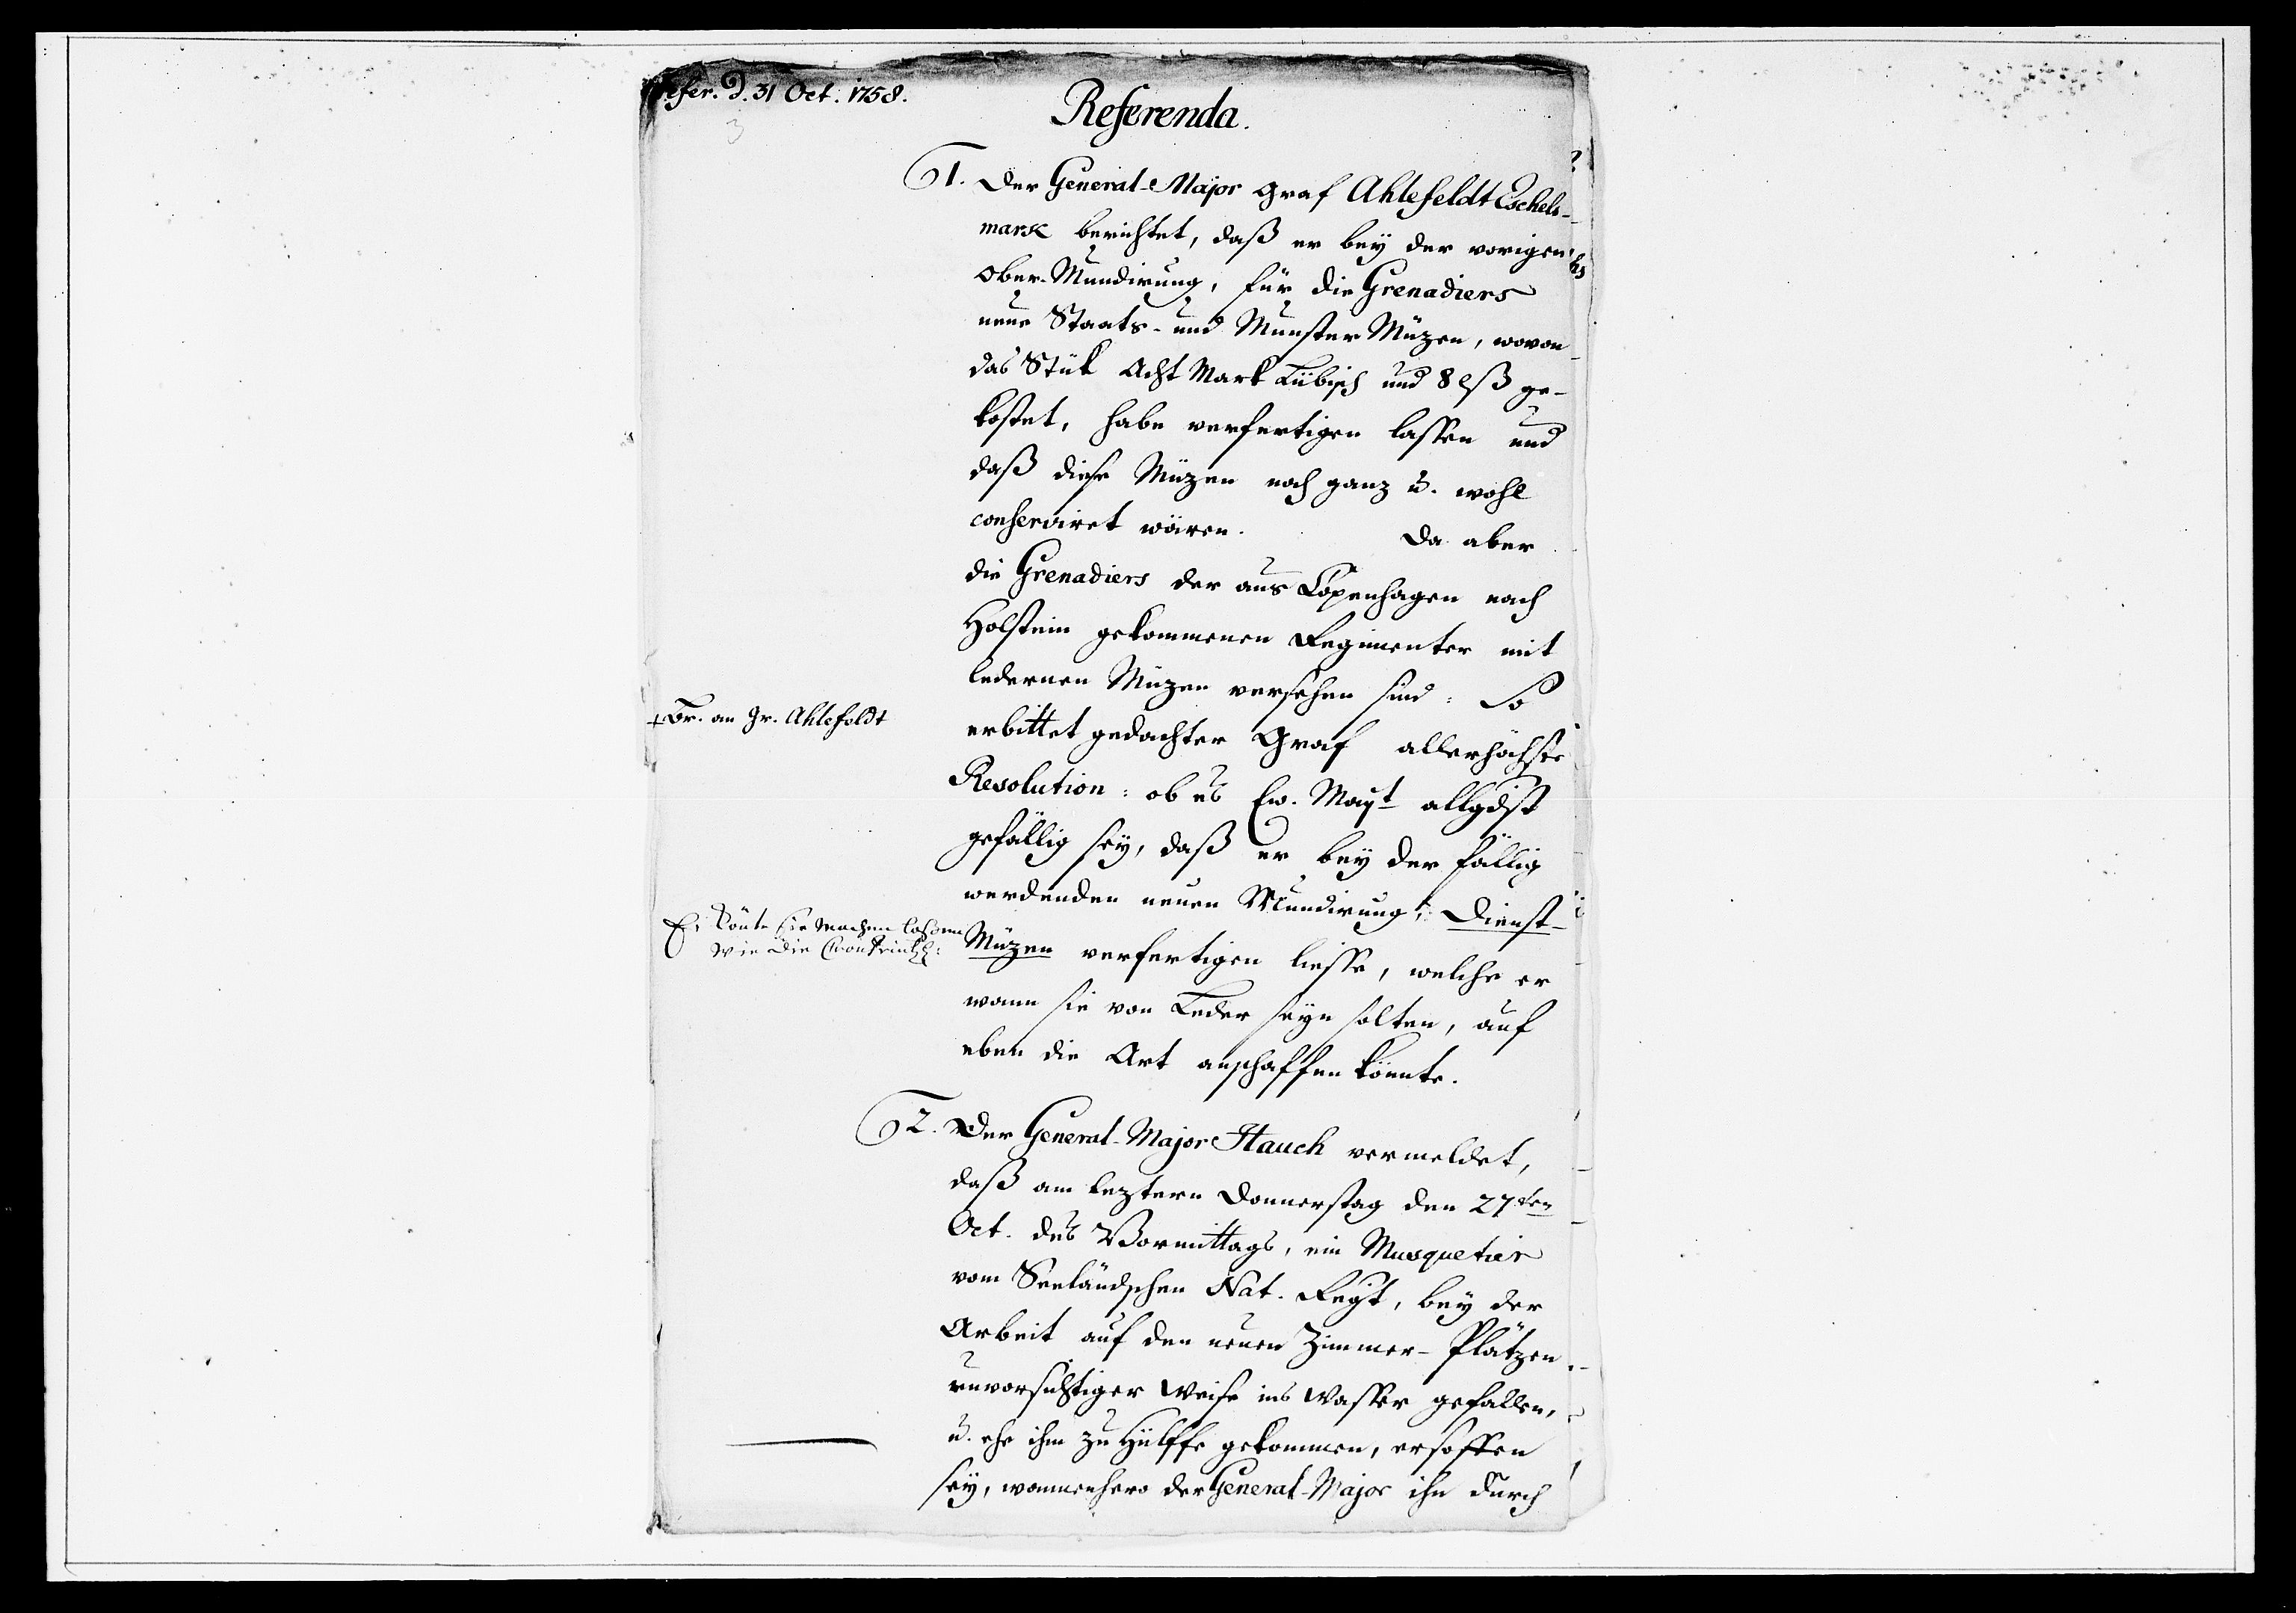 efer. d. 31 Oct. 1758.
3
Referenda.
1. Der General-Major Graf Ahlefeldt Eschels-
mark berichtet, daß er bey der vorigen
Ober-Mundirung, für die Grenadiers
neue Staats- und Munster Müzen, wovon
das Stük Acht Mark Lübisch und 8 lß ge-
kostet, habe verfertigen lassen und
daß diese Müzen noch ganz u. wohl
conserviret wären. Da aber
die Grenadiers der aus Copenhagen nach
Holstein gekommenen Regimenter mit
ledernen Müzen versehen sind: So
+ Br. an Gr. Ahlefeldt
erbittet gedachter Graf allerhöchste
Resolution: ob es Ew. Mayt allgdst
gefällig sey, daß er bey der fällig
werdenden neuen Mundirung, Dienst-
Er könte sie machen lassen
wie die Cronprintz:
Müzen verfertigen liesse, welche er
wann sie von Leder seyn solten, auf
eben die Art anschaffen könnte.
2. Der General-Major Hauch vermeldet,
daß am leztern Donnerstag den 27ten
Oct. des Vormittags, ein Musquetier
vom Seeländschen Nat. Regt, bey der
Arbeit auf den neuen Zimmer-Plätzen
unvorsichtiger Weise ins Wasser gefallen,
u. ehe ihm zu Hülffe gekommen, ersoffen
sey, wannenhero der General-Major ihn durch